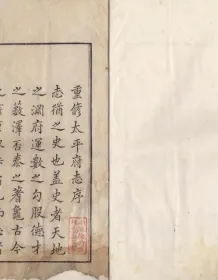 重修太平府志序
志猶之史也蓋史者天地
之淵府運數之勾股德才
之藪澤否泰之蓍龜古今